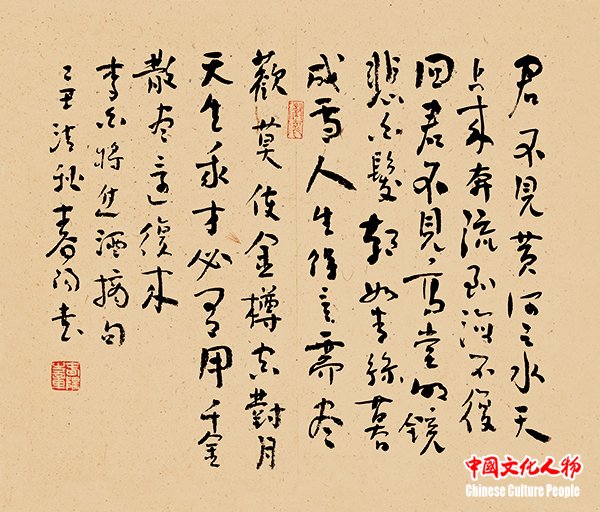 君不見黄河之水天
上来奔流到海不復
回君不見高堂明鏡
悲白髮朝如青絲暮
成雪人生得意需尽
歡莫使金樽空對月
天生我才必有用千金
散尽還復来
李白將進酒摘句
己丑清秋春阳書
中國文化人物
Chinese Culture People